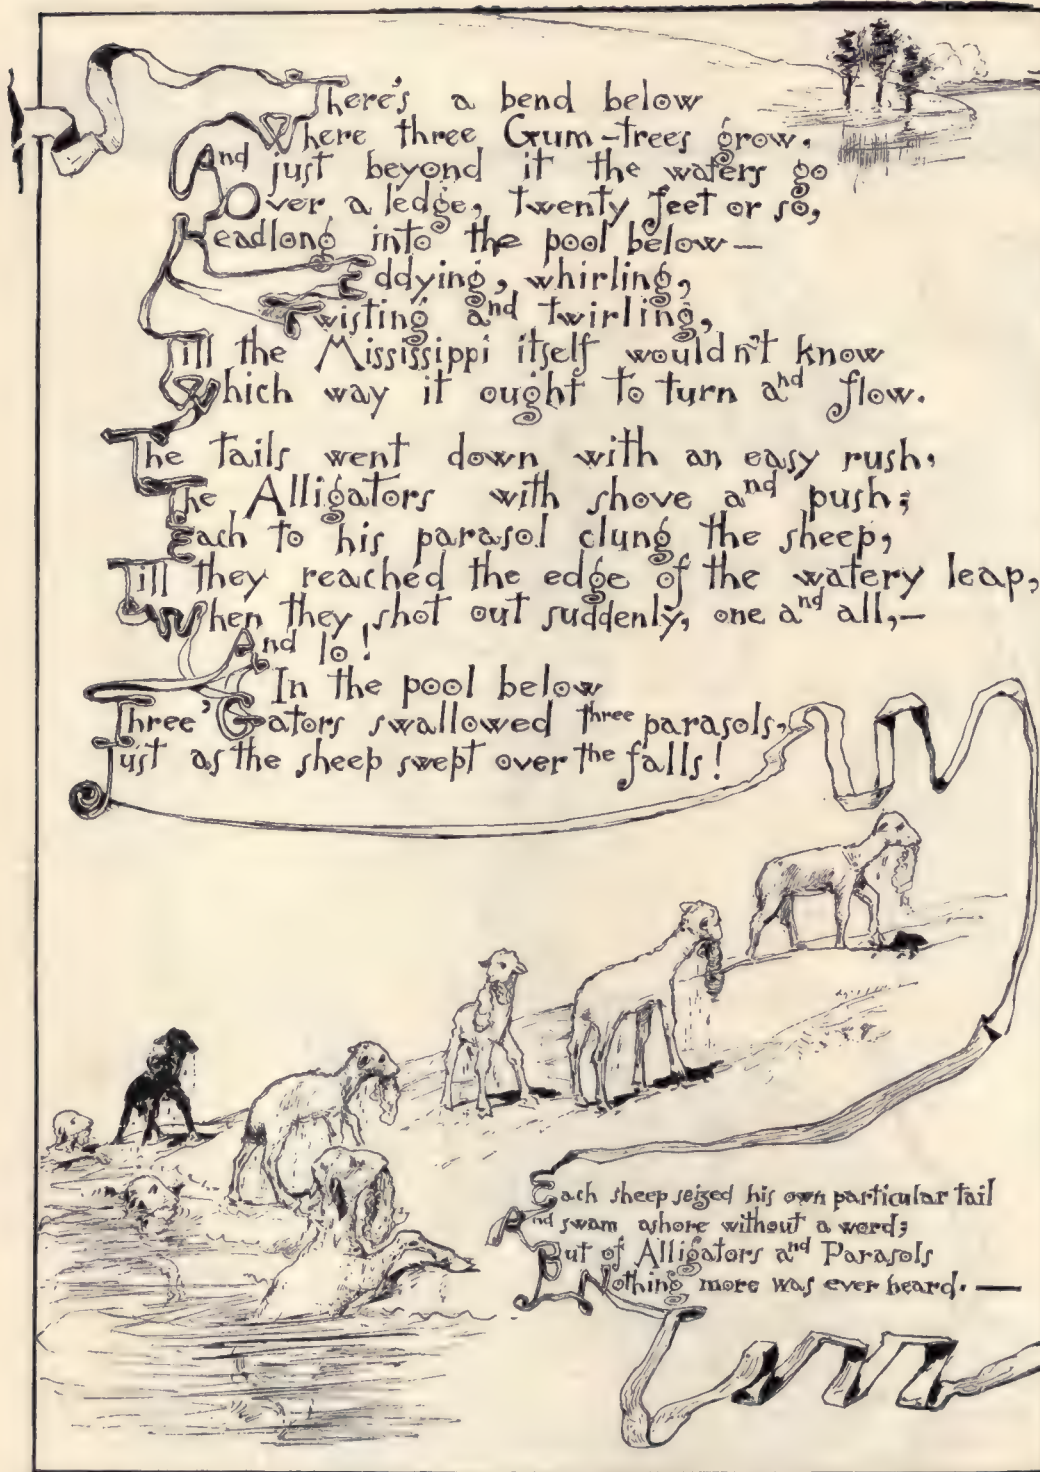 There's a bend below
Where three Gum-trees grow.
And just beyond it the waters go
Over a ledge, twenty feet or so,
Headlong into the pool below—
Eddying, whirling,
Twisting and twirling,
Till the Mississippi itself wouldn't know
Which way it ought to turn and flow.
The tails went down with an easy rush,
The Alligators with shove and push;
Each to his parasol clung the sheep,
Till they reached the edge of the watery leap,
When they shot out suddenly, one and all,—
And lo!
In the pool below
Three 'Gators swallowed three parasols,
Just as the sheep swept over the falls!
Each sheep seized his own particular tail
And swam ashore without a word;
But of Alligators and Parasols
Nothing more was ever heard.—